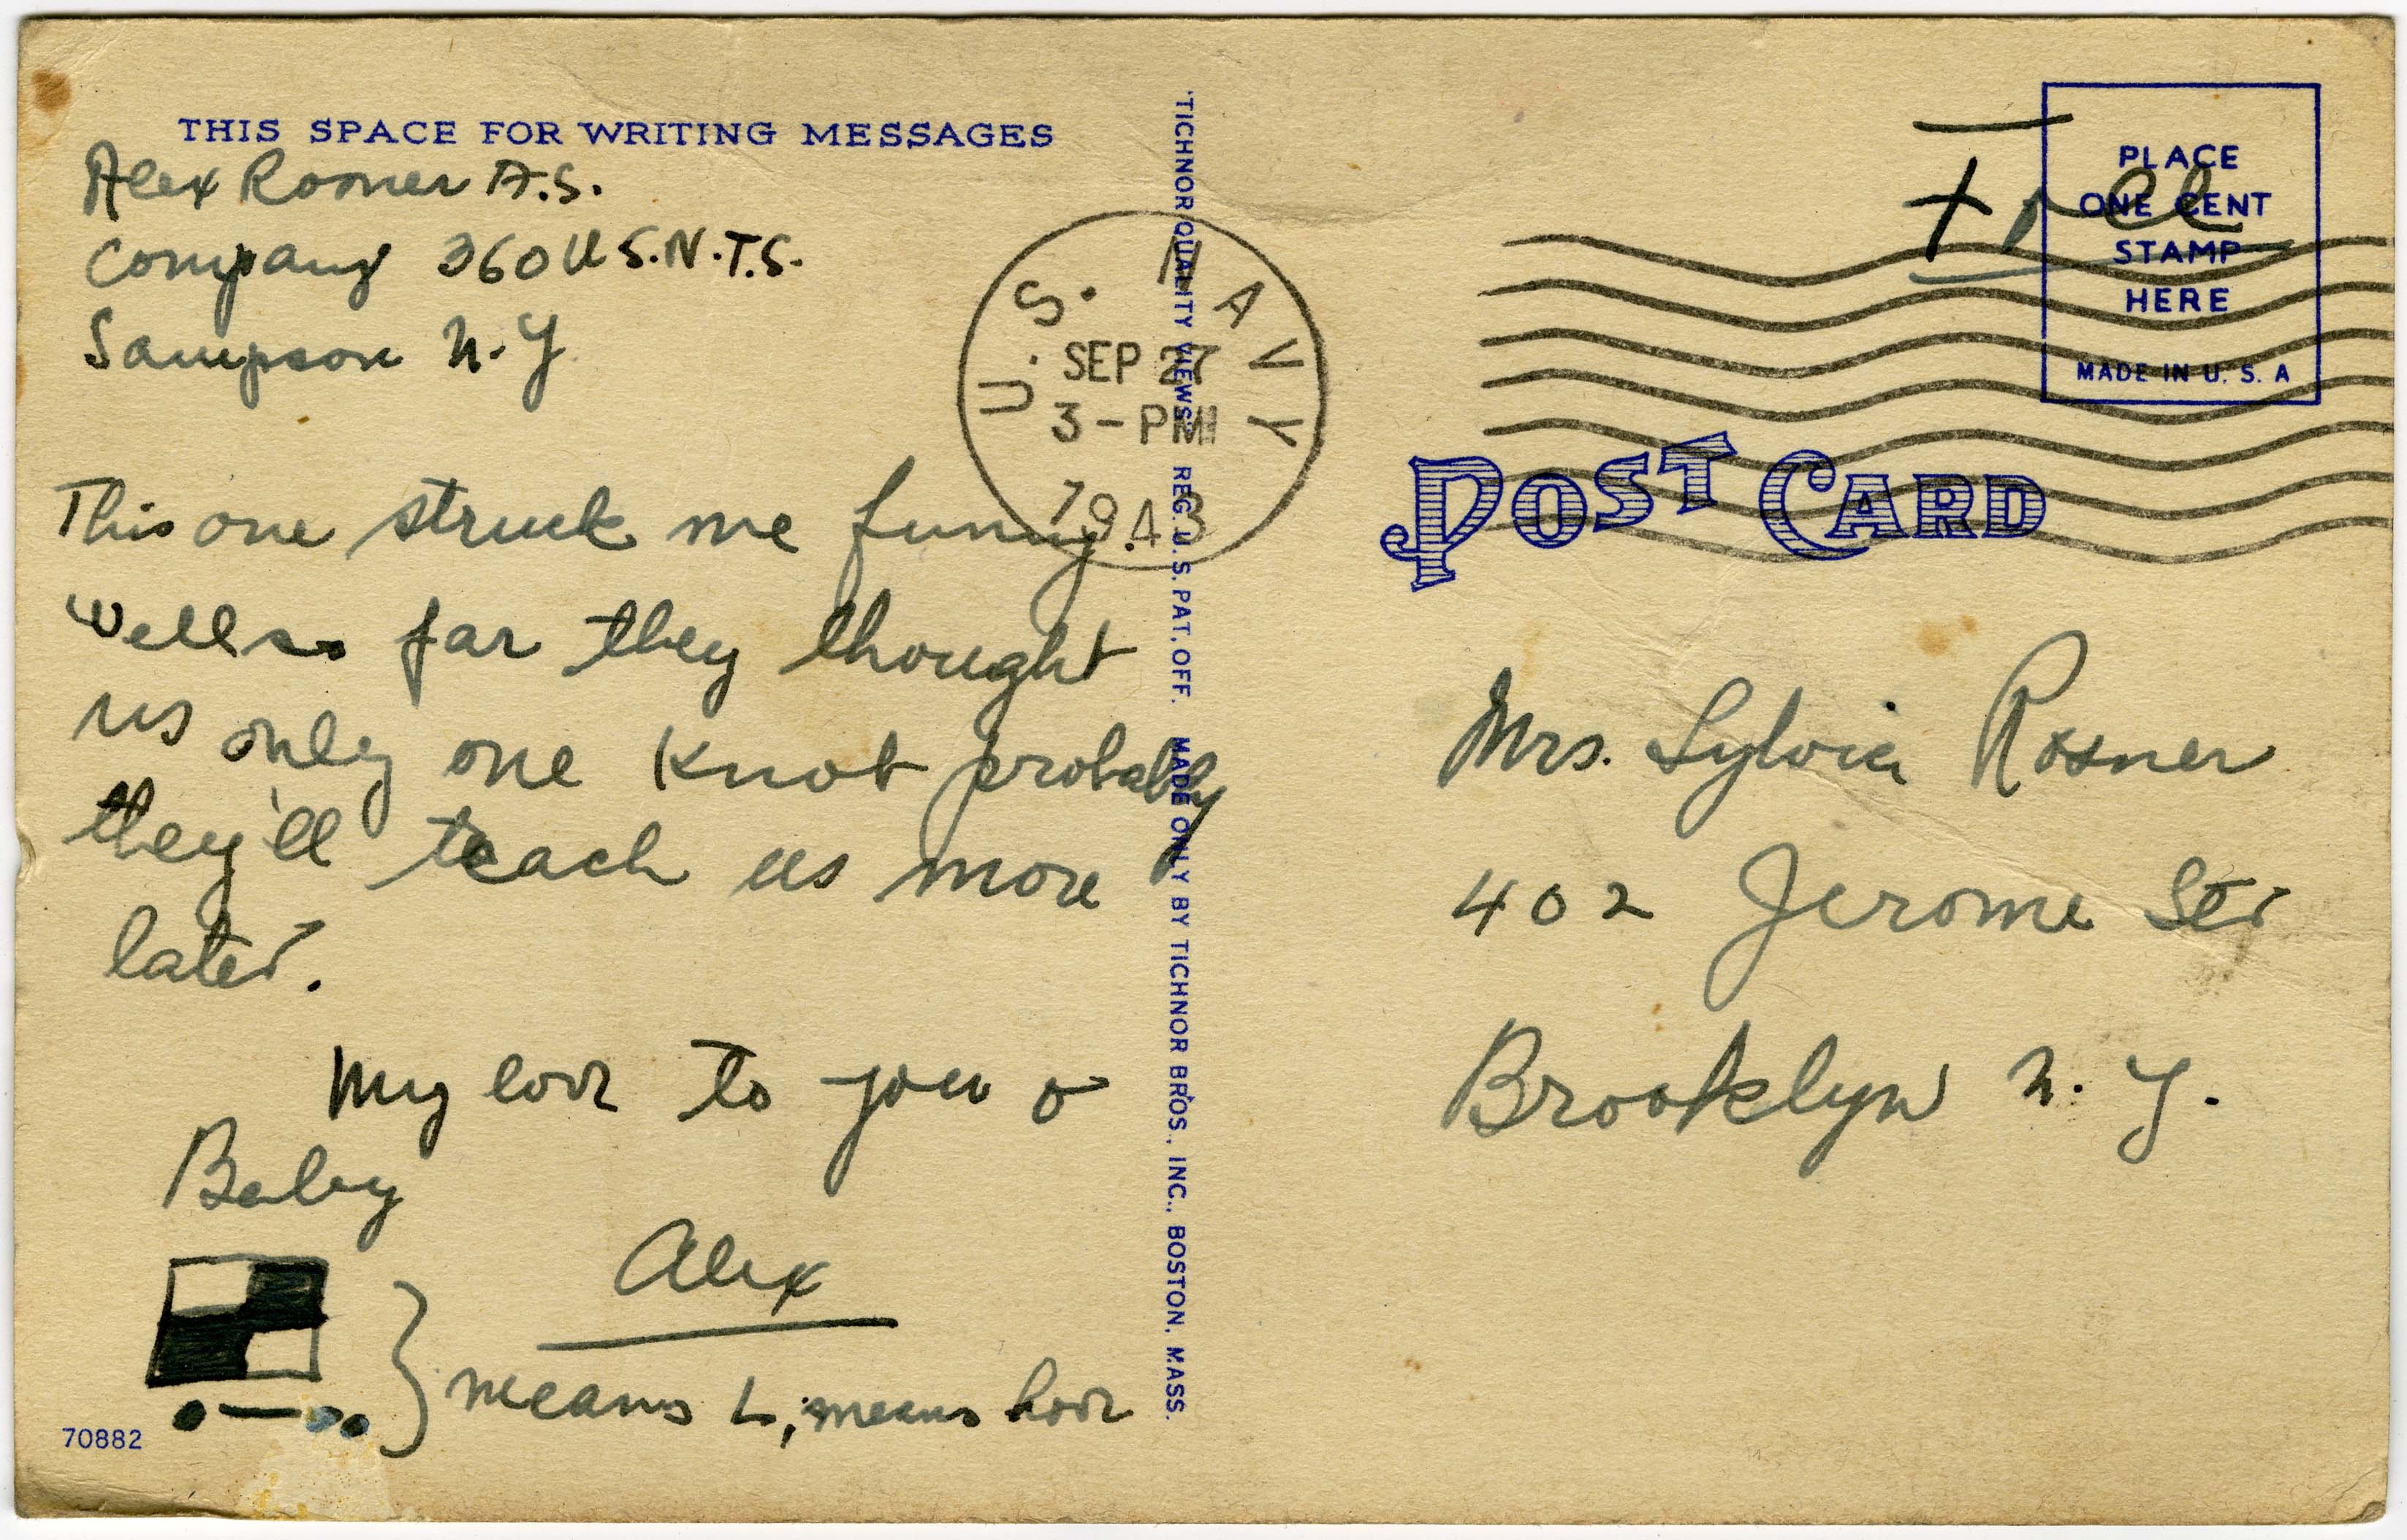 THIS SPACE FOR WRITING MESSAGES
Alex Rosner A.S.
Company 360 U.S.N.T.S.
Sampson N.Y
This one struck me funny.
Well so far they thought
us only one knot probably
they'll teach us more
later.
My love to you &
Baby
Alex
means L, means love
70882
U.S. NAVY
SEP 27
3-PM
1943
"TICHNOR QUALITY VIEWS" REG. U.S. PAT. OFF. MADE ONLY BY TICHNOR BROS., INC., BOSTON, MASS.
Free
PLACE
ONE CENT
STAMP
HERE
MADE IN U. S. A
POST CARD
Mrs. Sylvia Rosner
402 Jerome Str
Brooklyn N.Y.